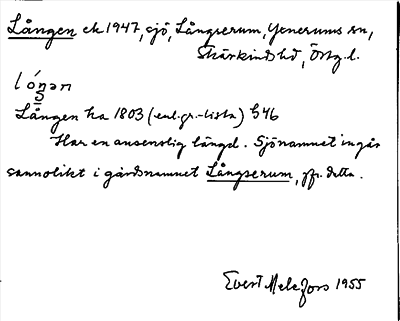 Lången ek 1947, sjö, Långserum, Yxnerums sn,
Skärkinds hd, Östg.l.
lóŋən
Lången ha 1803 (enl.gr.-lista) §46
Har en ansenlig längd. Sjönamnet ingår
sannolikt i gårdsnamnet Långserum, jfr. detta.
Evert Melefors 1955